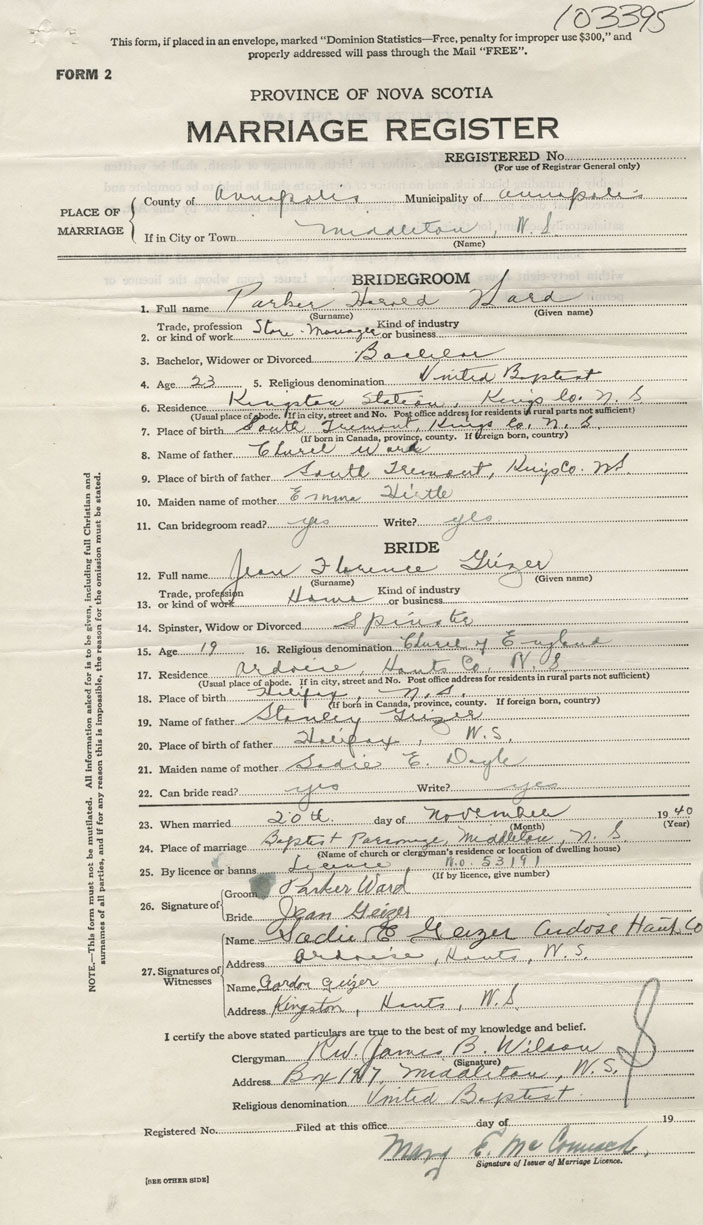 103395
This form, if placed in an envelope, marked "Dominion Statistics—Free, penalty for improper use $300," and
properly addressed will pass through the Mail "FREE".
FORM 2
PROVINCE OF NOVA SCOTIA
MARRIAGE REGISTER
REGISTERED No.
(For use of Registrar General only)
PLACE OF MARRIAGE
County of Annapolis Municipality of Annapolis
If in City or Town Middleton, N.S.
(Name)
BRIDEGROOM
1. Full name Parker Harold Ward
(Surname) (Given name)
Trade, profession Kind of industry
2. or kind of work Store-Manager or business
3. Bachelor, Widower or Divorced Bachelor
4. Age 23 5. Religious denomination United Baptist
6. Residence Kingston Station, Kings Co. N.S
(Usual place of abode. If in city, street and No. Post office address for residents in rural parts not sufficient)
7. Place of birth South Tremont, Kings Co. N.S.
(If born in Canada, province, county. If foreign born, country)
8. Name of father Ward
9. Place of birth of father South Tremont, Kings Co. NS
10. Maiden name of mother Emma Hirtle
11. Can bridegroom read? yes Write? yes
BRIDE
12. Full name Jean Florence Geizer
(Surname) (Given name)
Trade, profession Kind of industry
13. or kind of work Home or business
14. Spinster, Widow or Divorced Spinster
15. Age 19 16. Religious denomination Church of England
17. Residence Ardoise Hants Co. N.S.
(Usual place of abode. If in city, street and No. Post office address for residents in rural parts not sufficient)
18. Place of birth Halifax, N.S.
(If born in Canada, province, county. If foreign born, country)
19. Name of father Stanley Geizer
20. Place of birth of father Halifax, N.S.
21. Maiden name of mother Sadie E. Doyle
22. Can bride read? yes Write? yes
23. When married 20th day of November 1940
(Month) (Year)
24. Place of marriage Baptist Parsonage, Middleton, N.S.
(Name of church or clergyman's residence or location of dwelling house)
25. By licence or banns Licence No. 53191
(If by licence, give number)
26. Signature of
Groom Parker Ward
Bride Jean Geizer
27. Signatures of Witnesses
Name Sadie E Geizer Ardose Hant Co
Address Ardoise, Hants, N.S.
Name Gordon Geizer
Address Kingston, Hants, N.S.
I certify the above stated particulars are true to the best of my knowledge and belief.
Clergyman Rev. James B. Wilson
(Signature)
Address Box 197, Middleton, N.S.
Religious denomination United Baptist
Registered No. Filed at this office day of 19
Mary E. McCormack.
Signature of Issuer of Marriage Licence.
[SEE OTHER SIDE]
NOTE.—This form must not be mutilated. All information asked for is to be given, including full Christian and
surnames of all parties, and if for any reason this is impossible, the reason for the omission must be stated.